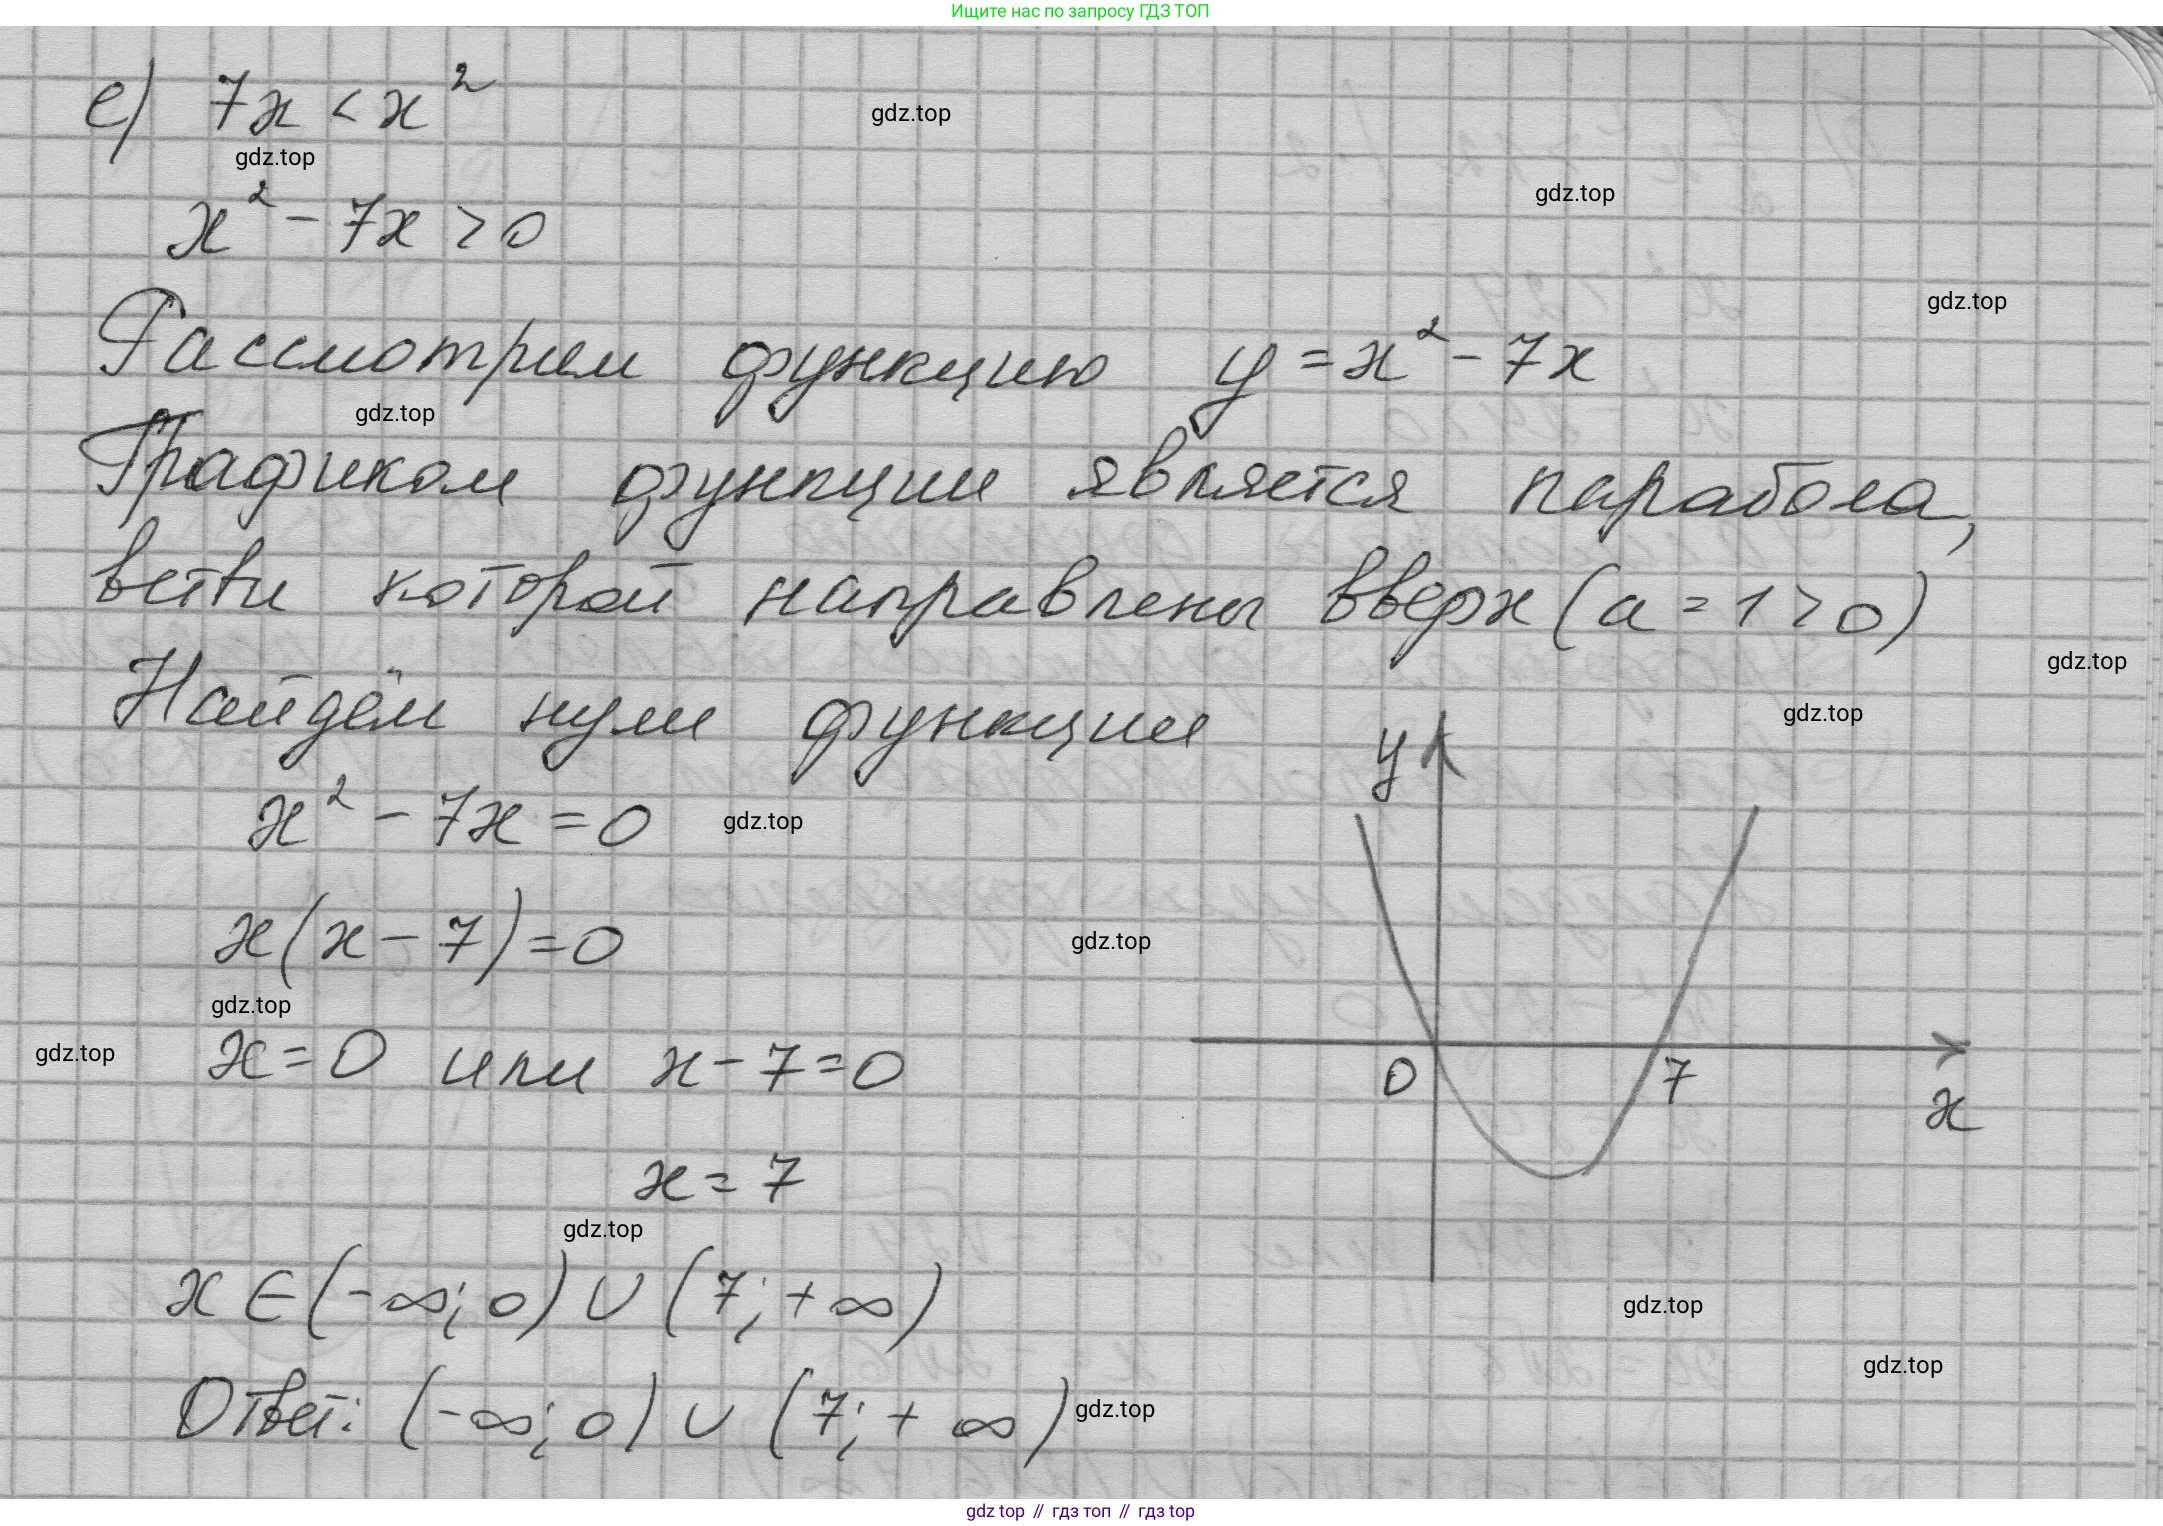 Ищите нас по запросу ГДЗ ТОП
е) 7x < x²
gdz.top
gdz.top
x² - 7x > 0
gdz.top
gdz.top
Рассмотрим функцию y = x² - 7x
gdz.top
Графиком функции является парабола,
ветви которой направлены вверх (a = 1 > 0)
gdz.top
Найдём нули функции
gdz.top
y
x² - 7x = 0
gdz.top
x(x - 7) = 0
gdz.top
gdz.top
gdz.top
x = 0 или x - 7 = 0
0
7
x
x = 7
gdz.top
x ∈ (-∞; 0) ∪ (7; +∞)
gdz.top
gdz.top
Ответ: (-∞; 0) ∪ (7; +∞)
gdz.top
gdz top // гдз топ // гдз top